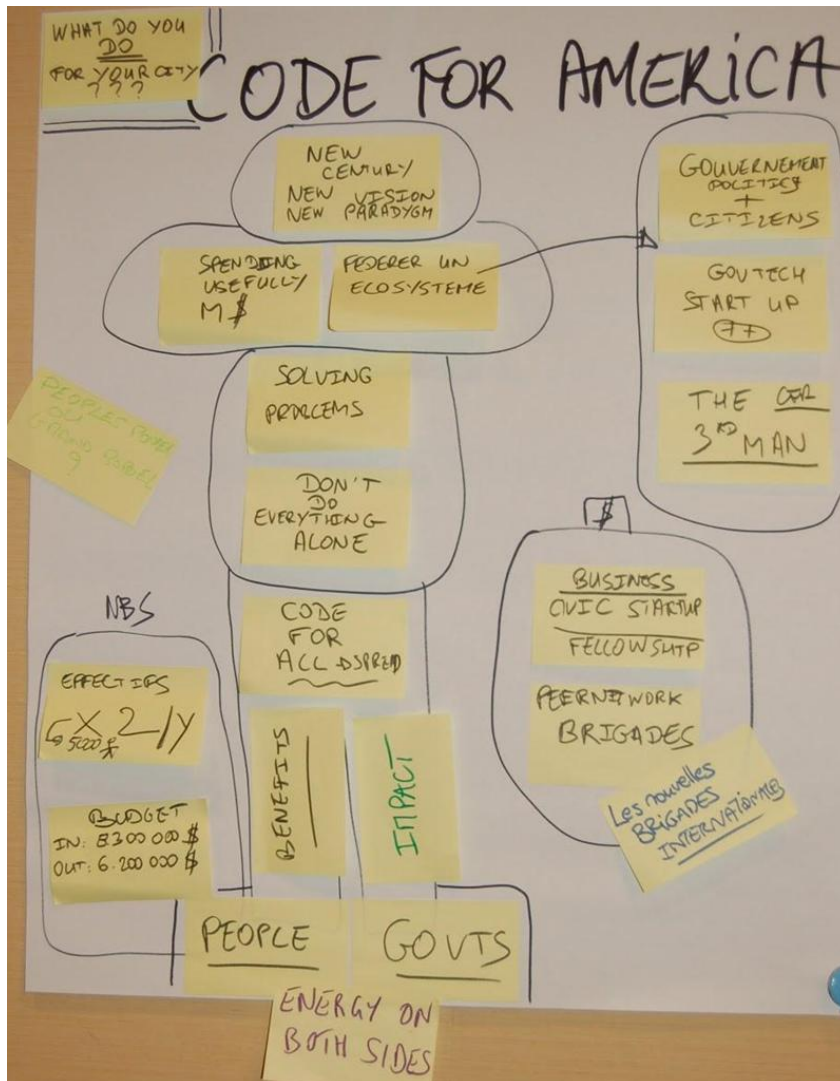 WHAT DO YOU
DO
FOR YOUR CITY
? ? ?
CODE FOR AMERICA
NEW
CENTURY
NEW VISION
NEW PARADYGM
SPENDING
USEFULLY
M$
FEDERER UN
ECOSYSTEME
GOUVERNEMENT
POLITICS
+
CITIZENS
GOVTECH
START UP
77
THE CFA
3RD MAN
SOLVING
PROBLEMS
DON'T
DO
EVERYTHING
ALONE
PEOPLE
OU
?
$
BUSINESS
CIVIC STARTUP
FELLOWSHIP
PEERNETWORK
BRIGADES
Les nouvelles
BRIGADES
INTERNATIONALES
NBS
EFFECTIFS
X 2/Y
5000
BUDGET
IN: 8.300 000 $
OUT: 6.200 000 $
CODE
FOR
ALL
BENEFITS
IMPACT
PEOPLE
GOVTS
ENERGY ON
BOTH SIDES